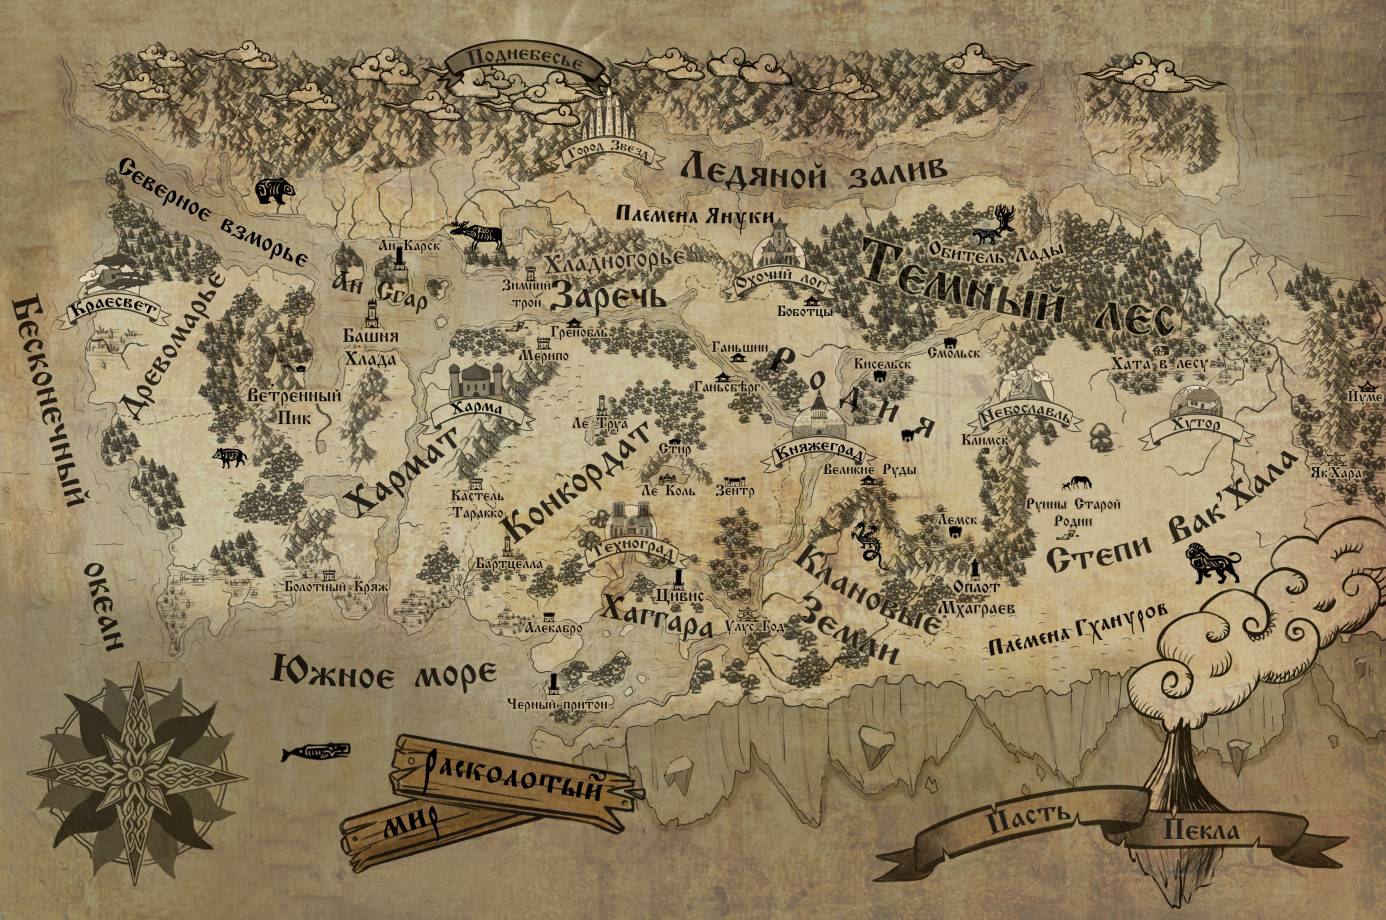 Поднебесье
Город Звезд
Ледяной залив
Северное взморье
Племена Януки
Ан-Карск
Ан Сгар
Хладногорье
Обитель Лады
Темный лес
Охочий лог
Зимний
трон
Заречь
Краесвет
Боботцы
Башня
Хлада
Гренобль
Мерипо
Древоморье
Бесконечный
океан
Ганьшин
Ганьсберг
Родия
Кисельск
Смольск
Хата в лесу
Ветренный
Пик
Харма
Хармат
Ле Труа
Стир
Ле Коль
Зентр
Конкордат
Княжеград
Великие Руды
Небославль
Климск
Хутор
Як'Хара
Кастель
Таракко
Руины Старой
Родии
Степи Вак'Хала
Техноград
Лемск
Бартцелла
Болотный Кряж
Цивис
Клановые
Земли
Оплот
Мхаграев
Хаггара
Улус Год
Алекабро
Племена Гхануров
Южное море
Черный притон
Расколотый
мир
Пасть
Пекла